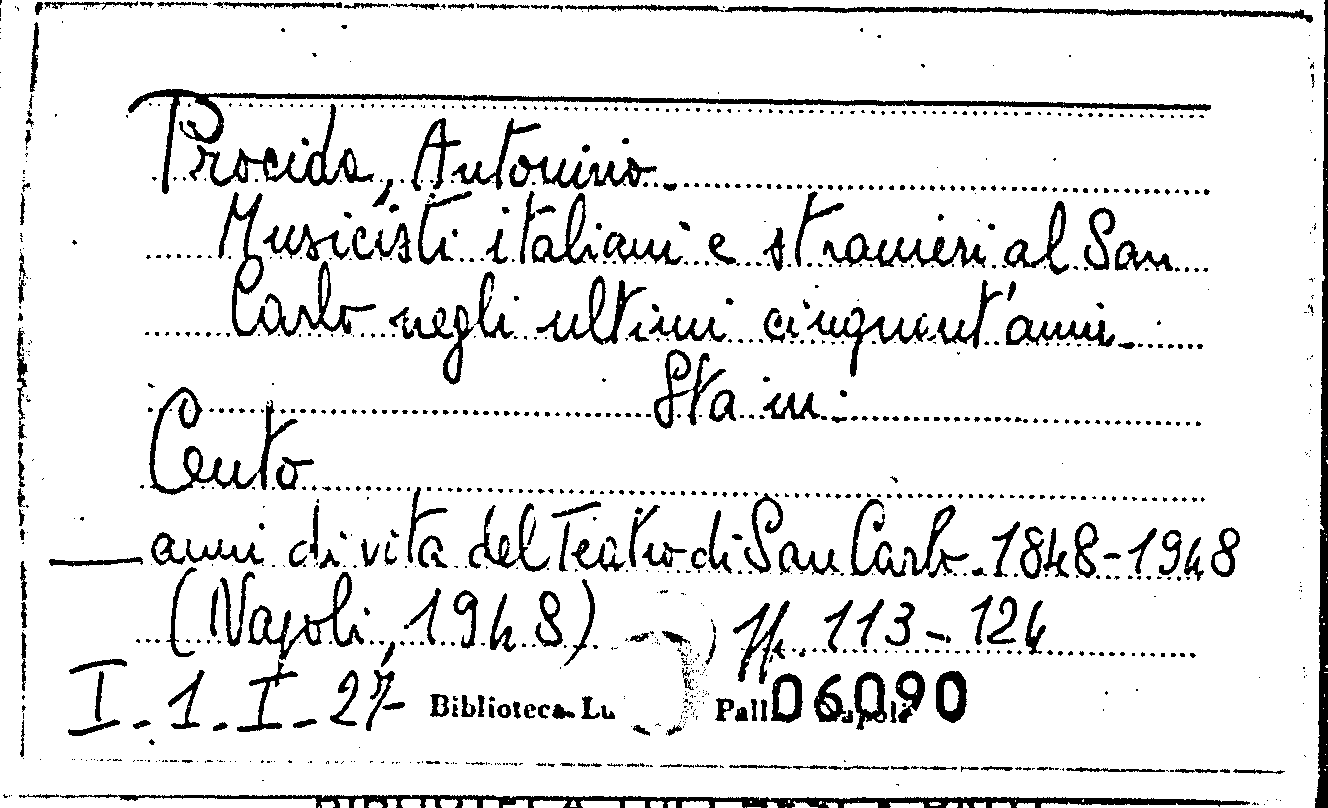 Procida, Antonino.
Musicisti italiani e stranieri al San
Carlo negli ultimi cinquant'anni.
Sta in:
Cento
anni di vita del Teatro di San Carlo. 1848-1948
(Napoli, 1948) pp. 113-124
I. 1. I. 27 Biblioteca Lu Pall 06090